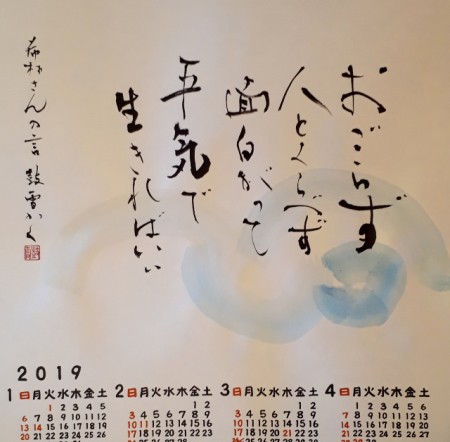 おごらず
人とくらべず
面白がって
平気で
生きればいい
希林さんの言
2019
1 日月火水木金土
1 2 3 4 5
6 7 8 9 10 11 12
13 14 15 16 17 18 19
20 21 22 23 24 25 26
2 日月火水木金土
1 2
3 4 5 6 7 8 9
10 11 12 13 14 15 16
17 18 19 20 21 22 23
3 日月火水木金土
1 2
3 4 5 6 7 8 9
10 11 12 13 14 15 16
17 18 19 20 21 22 23
4 日月火水木金土
1 2 3 4 5 6
7 8 9 10 11 12 13
14 15 16 17 18 19 20
21 22 23 24 25 26 27